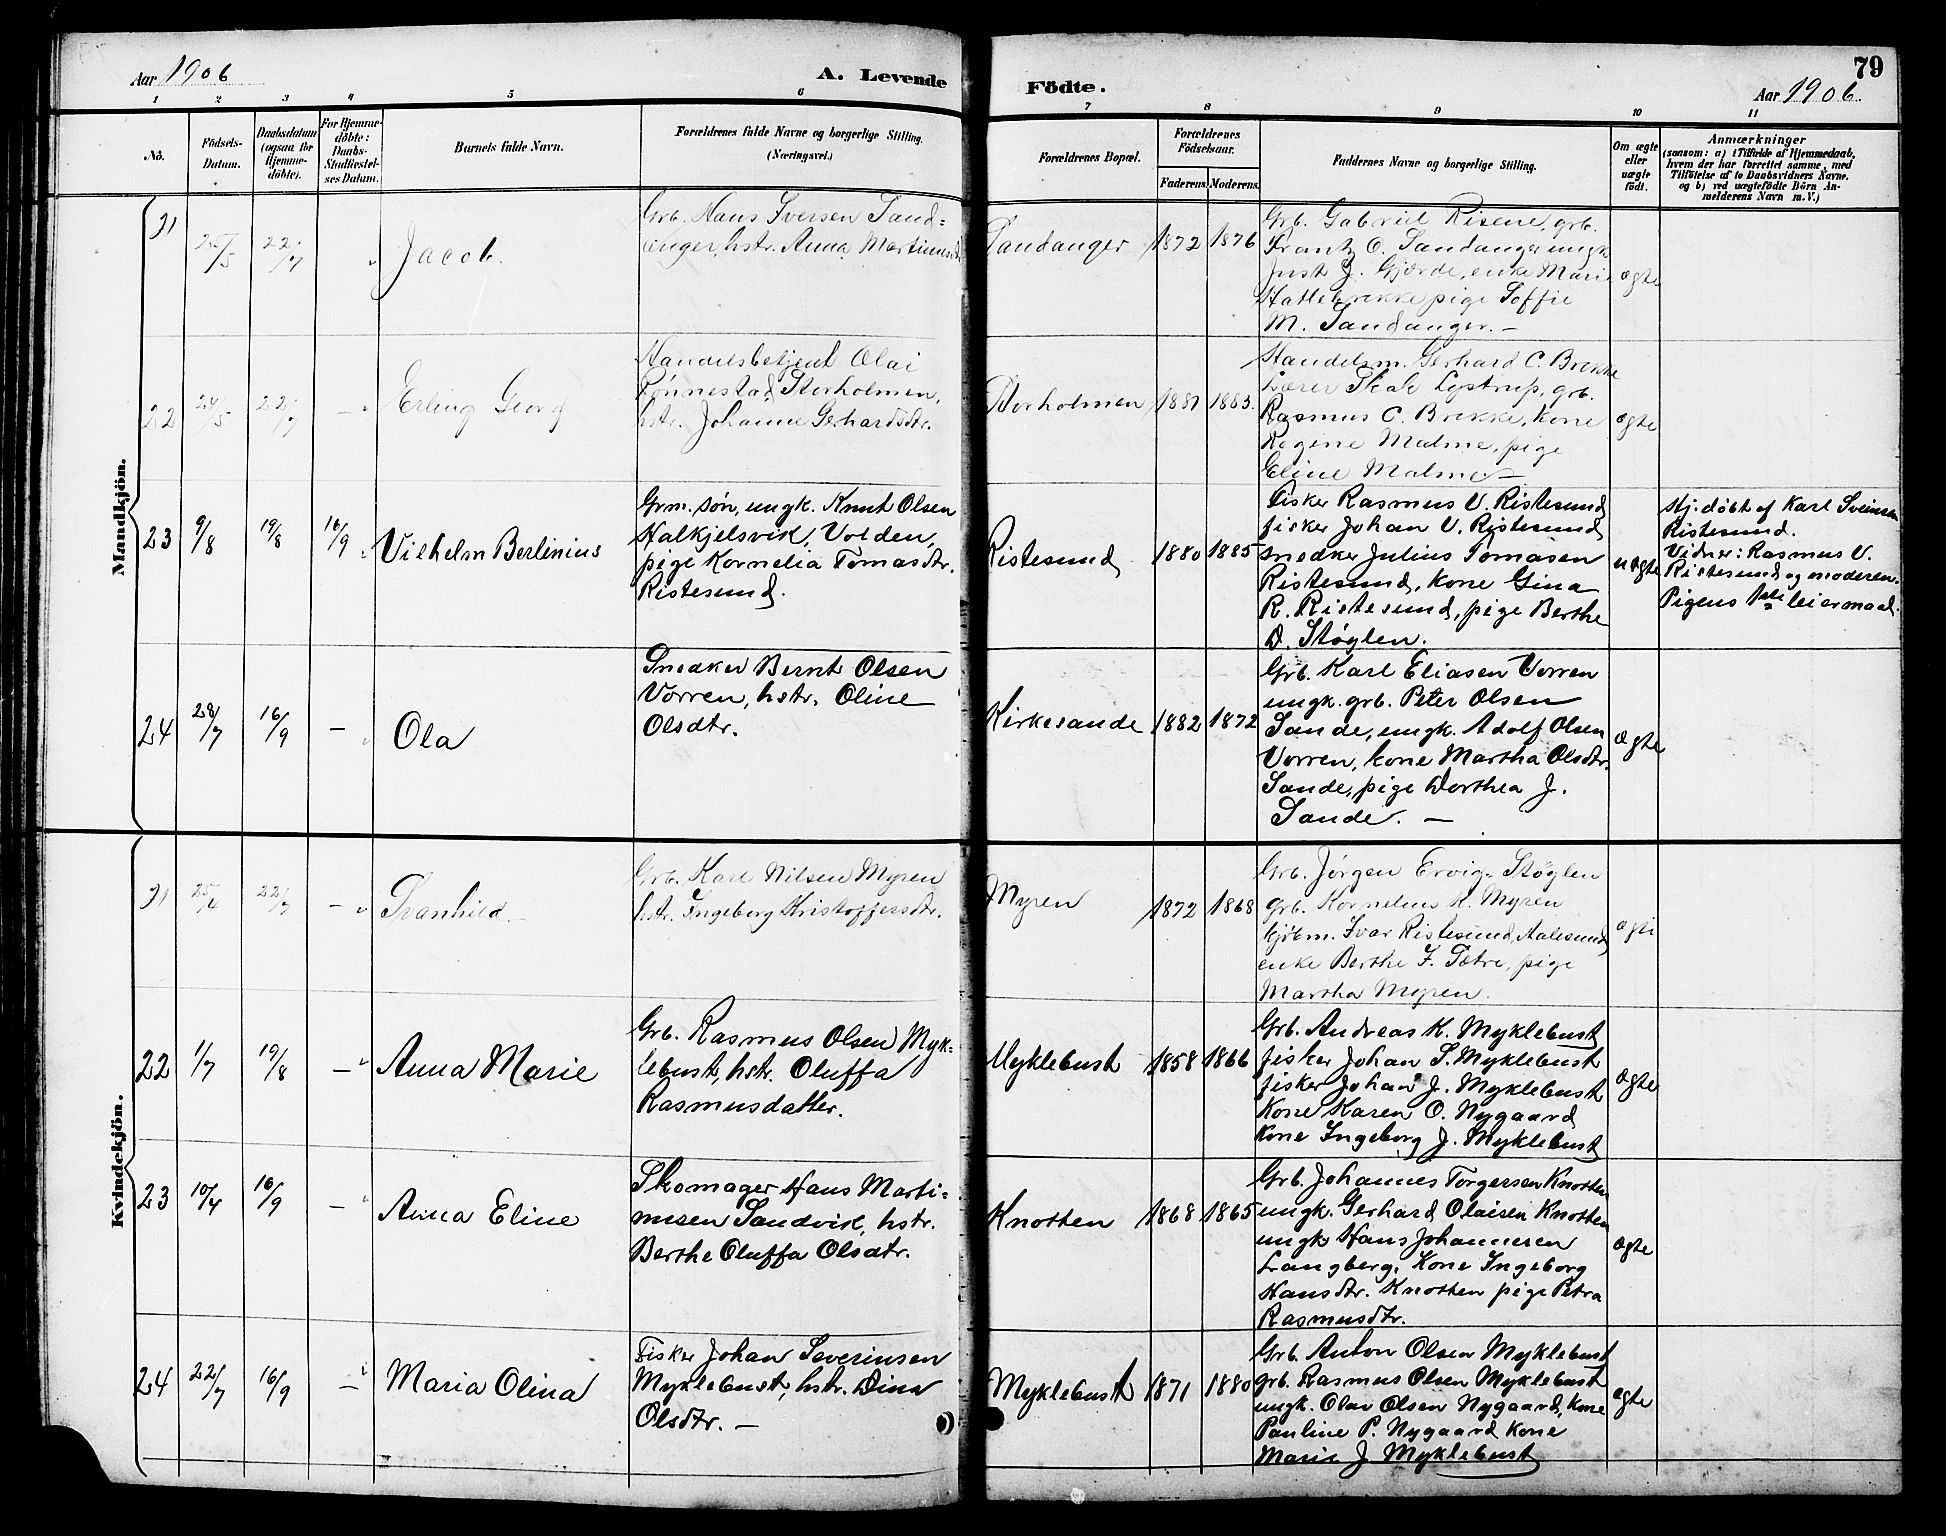 Aar 1906
A. Levende
Födte.
79
Aar 1906.
1 2 3 4 5 6 7 8 9 10 11
No.
Födsels-
Datum.
Daabsdatum
(ogsaa for
Hjemme-
döbte).
For Hjemme-
döbte:
Daabs-
Stadfæstel-
ses Datum.
Barnets fulde Navn.
Forældrenes fulde Navne og borgerlige Stilling.
(Næringsvei.)
Forældrenes Bopæl.
Forældrenes
Födselsaar.
Faderens. Moderens.
Faddernes Navne og borgerlige Stilling.
Om ægte
eller
uægte
födt.
Anmærkninger
(saasom: a) i Tilfælde af Hjemmedaab,
hvem der har forrettet samme, med
Tilföielse af to Daabsvidners Navne.
og b) ved uægtefödte Börn An-
melderens Navn m. V.)
Mandkjön.
21
25/5
22/7
Jacob.
Grb. Hans Iversen Sand-
anger, hstr. Anna Martinusdtr
Sandanger
1872
1876
Grb. Gabriel Risene, grb.
Frantz O. Sandanger ungk
Just J. Gjærde, enke Marie
Hatlebrekke pige Soffie
M. Sandanger. —
ægte
22
24/5
22/7
—
Erling Georg
Handelsbetjent Olai
Rønnestad Storholmen,
hstr. Johanne Gerhardsdtr.
Storholmen
1881
1883.
Handelsm. Gerhard C. Brekke
Lærer Skak Lystrup, grb.
Rasmus C. Brekke, kone
Ragine Malme, pige
Eline Malme —
ægte
23
9/8
19/8
16/9
Vilhelm Berlinius
Grm. søn, ungk. Knut Olsen
Halkjelsvik, Volden,
pige Kornelia Tomasdtr.
Ristesund.
Ristesund
1880
1885
Fisker Rasmus V. Ristesund
fisker Johan V. Ristesund
snedker Julius Tomasen
Ristesund, kone Gina
R. Ristesund, pige Berthe
D. Støylen.
uægte
Hj. døbt af Karl Sveinsen
Ristesund.
Vidner: Rasmus V.
Ristesund og moderen.
Pigens 1ste leiermaal.
24
28/7
16/9
—
Ola
Snedker Bernt Olsen
Vorren, hstr. Oline
Olsdtr.
Kirkesande
1882
1872
Grb. Karl Eliasen Vorren
ungk. grb. Peter Olsen
Sande, ungk. Adolf Olsen
Vorren, kone Martha Olsdtr.
Sande, pige Dorthea J.
Sande. —
ægte
Kvindekjön.
21
25/4
22/7
—
Svanhild
Grb. Karl Nilsen Myren
hstr. Ingeborg Kristoffersdtr.
Myren
1872
1868
Grb. Jørgen Ervig-Støylen
grb. Kornelius K. Myren
kjøbm. Ivar Ristesund, Aalesund
enke Berthe F. Sætre, pige
Martha Myren.
ægte
22
1/7
19/8
—
Anna Marie
Grb. Rasmus Olsen Myk-
lebust, hstr. Oluffa
Rasmusdatter.
Myklebust
1858
1866
Grb. Andreas K. Myklebust
fisker Johan S. Myklebust
fisker Johan J. Myklebust
Kone Karen O. Nygaard
Kone Ingeborg J. Myklebust
ægte
23
10/4
16/9
—
Anna Eline
Skomager Hans Marti-
nusen Sandvik, hstr.
Berthe Oluffa Olsdtr.
Knotten
1868
1865
Grb. Johannes Torgersen Knotten
ungk. Gerhard Olaisen Knotten
ungk Hans Johannesen
Langberg, Kone Ingeborg
Hansdtr. Knotten pige Petra
Rasmusdtr.
ægte
24
22/7
16/9
—
Maria Olina
Fisker Johan Severinsen
Myklebust, hstr. Dina
Olsdtr. —
Myklebust
1871
1880
Grb. Anton Olsen Myklebust
grb. Rasmus Olsen Myklebust
ungk. Olav Olsen Nygaard, Kone
Pauline P. Nygaard Kone
Marie J. Myklebust
ægte